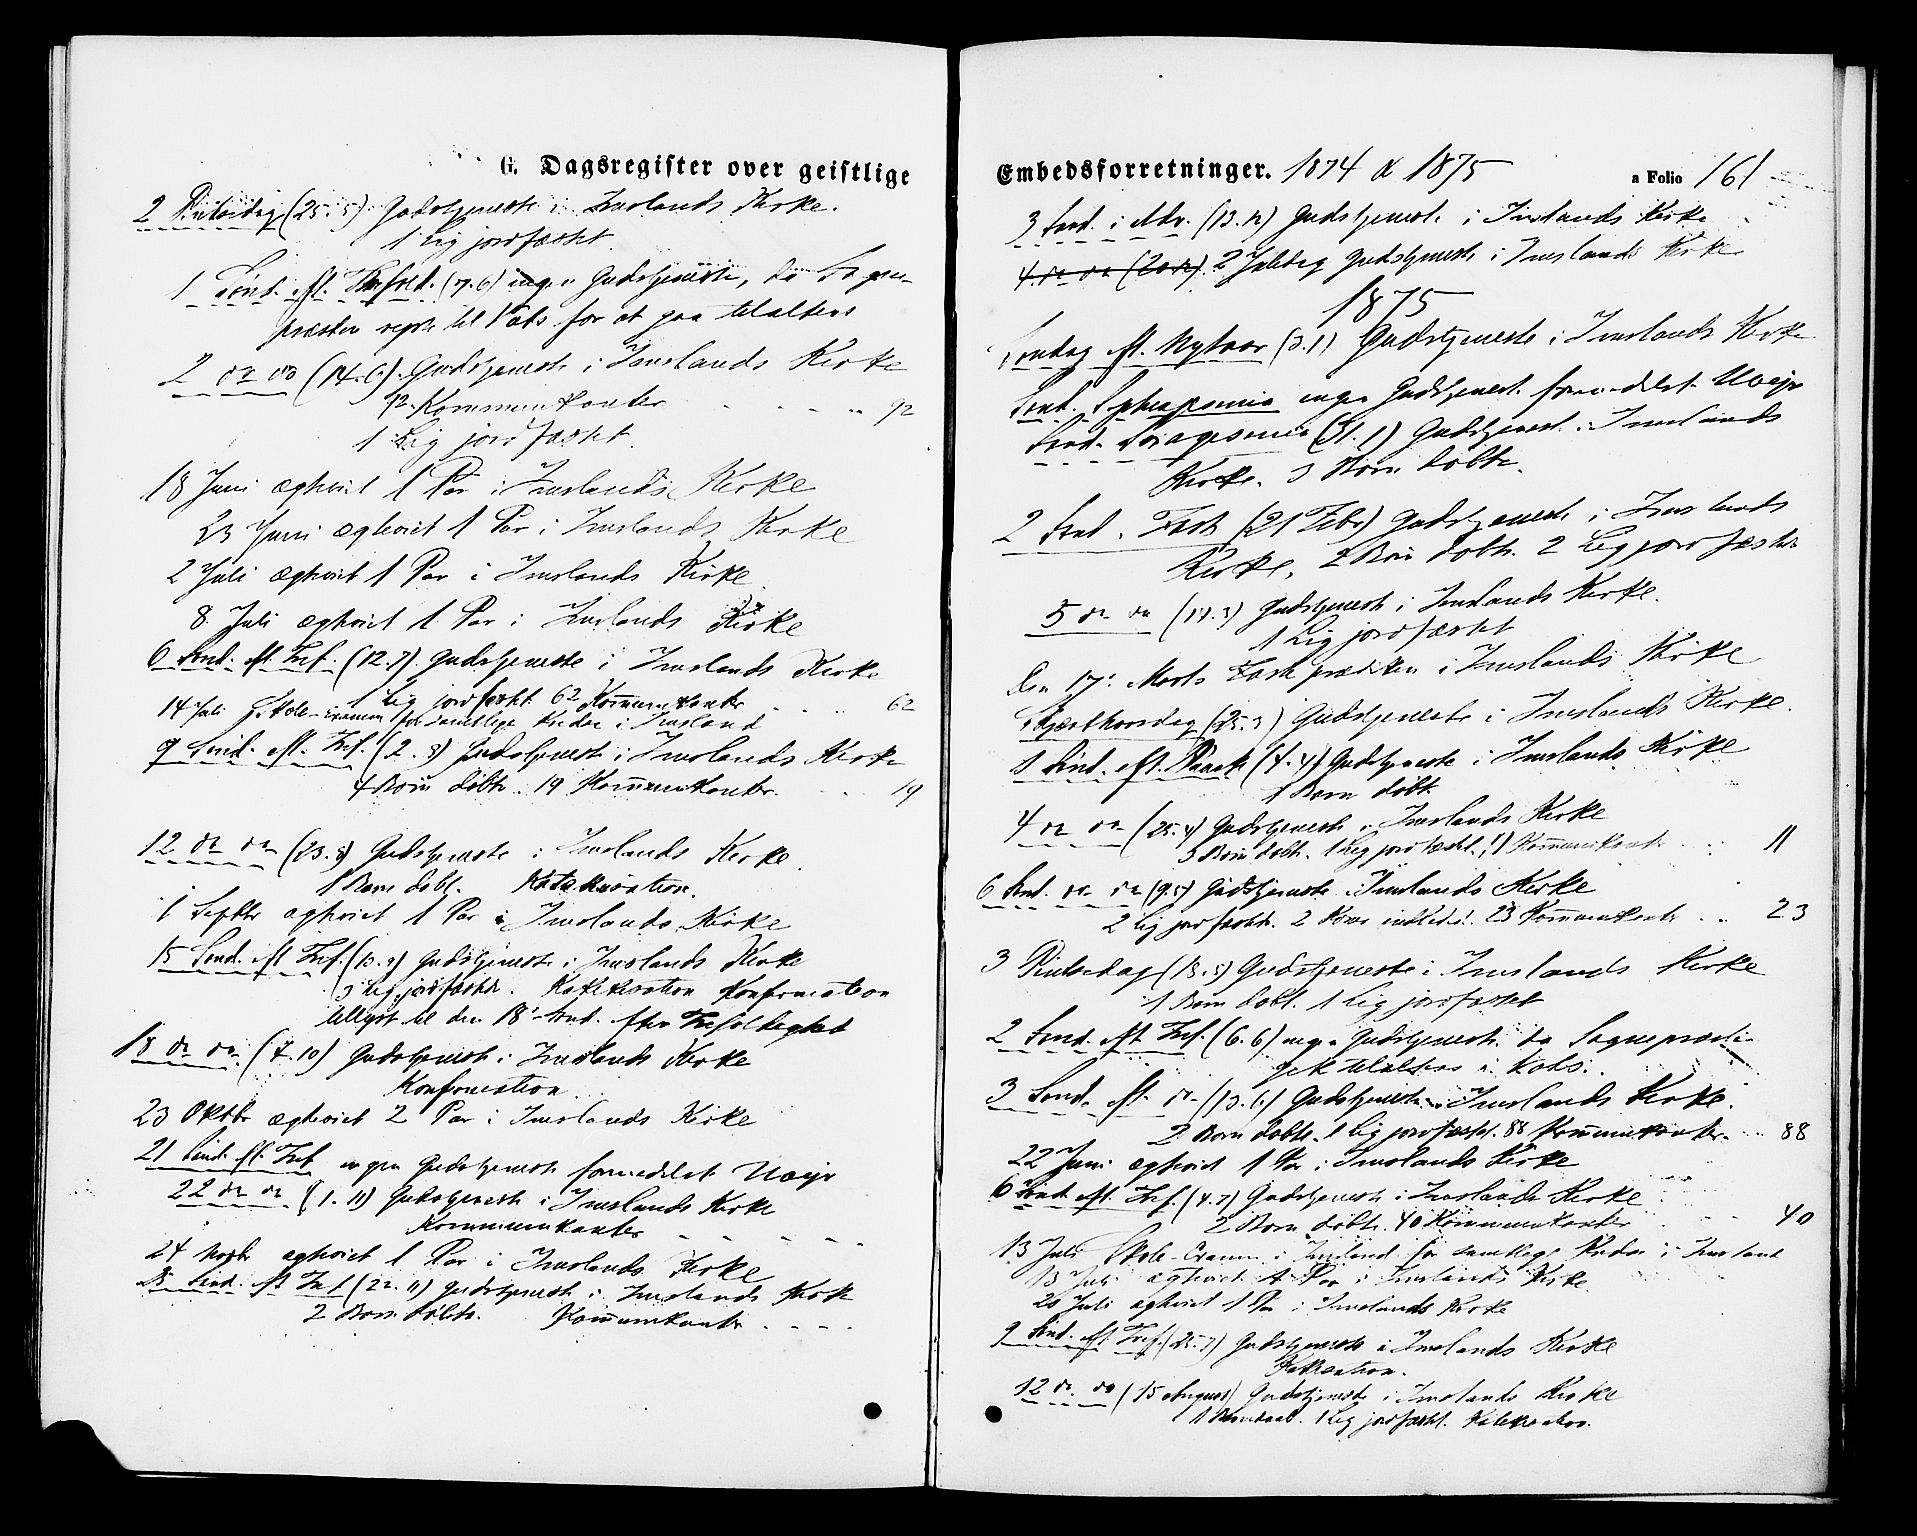 G. Dagsregister over geistlige
2 Pintsedag (25.5) Gudstjeneste i Imslands Kirke.
1 Lig jordfæstet.
1 Sønd. eft. Trefold. (7.6) ingen Gudstjeneste, da Sogne-
præsten rejste til for at gaa tilalters
2 do do (14.6). Gudstjeneste i Imslands Kirke
92 Kommunikanter 92
1 Lig jordfæstet.
18 Juni ægteviet 1 Par i Imslands Kirke
23 Juni ægteviet 1 Par i Imslands Kirke
2 Juli ægteviet 1 Par i Imslands Kirke
8 Juli ægteviet 1 Par i Imslands Kirke
6 Sønd. eft. Tref. (12.7). Gudstjeneste i Imslands Kirke
1 Lig jordfæstet 62 Kommunikanter 62
14 Juli Skole-Examen for samtlige Kredse i Imsland
9 Sønd. eft. Tref. (2.8) Gudstjeneste i Imslands Kirke
4 Børn døbte. 19 Kommunikanter. 19
12 do do (23.8) Gudstjeneste i Imslands Kirke.
1 Barn døbt. Katekisation.
1 Septbr ægteviet 1 Par i Imslands Kirke
15 Sønd. eft Tref. (13.9) Gudstjeneste i Imslands Kirke
3 Lig jordfæstede. Katekisation Konfirmation
tillyst til den 18de Sønd. efter Trefoldighed
18 do do. (4.10) Gudstjeneste i Imslands Kirke
Konfirmation
23 Oktbr ægteviet 2 Par i Imslands Kirke
21 Sønd. eft. Tref ingen Gudstjeneste formedelst Uveir
22 do do (1.11) Gudstjeneste i Imslands Kirke
Kommunikanter
24 Novbr ægteviet 1 Par i Imslands Kirke
25 Sønd. eft Tref (22.11) Gudstjeneste i Imslands Kirke
2 Børn døbte. Kommunikanter
Embedsforretninger. 1874 & 1875 a Folio 161
3 Sønd. i Adv. (13.12) Gudstjeneste i Imslands Kirke
4 do do (20.12) 2 Juledag Gudstjeneste i Imslands Kirke
1875
Søndag eft. Nytaar (3.1) Gudstjeneste i Imslands Kirke
Sønd. Septuagesima ingen Gudstjeneste formedelst Uveir
Sønd. Sexagesima (31.1) Gudstjeneste i Imslands
Kirke. 3 Børn døbte.
2 Sønd. i Faste (21 Febr) Gudstjeneste i Imslands
Kirke. 2 Børn døbte. 2 Lig jordfæstede
5 do do (14.3) Gudstjeneste i Imslands Kirke.
1 Lig jordfæstet
Den 17de Marts Fasteprædiken i Imslands Kirke
Skjærthorsdag (25.3) Gudstjeneste i Imslands Kirke.
1 Sønd. eft. Paask (4.4) Gudstjeneste i Imslands Kirke
1 Barn døbt
4 do do (25.4) Gudstjeneste i Imslands Kirke
3 Børn døbte. 1 Lig jordfæstet. 11 Kommunikanter 11
6 Sønd. do do (9.5) Gudstjeneste i Imslands Kirke
2 Lig jordfæstede. 2 Koner indledede. 23 Kommunikanter 23
3 Pintsedag (18.5) Gudstjeneste i Imslands Kirke
1 Barn døbt. 1 Lig jordfæstet
2 Sønd. eft Tref. (6.6) ingen Gudstjeneste da Sognepræsten
gik tilalters i
3 Sønd. eft. do (13.6) Gudstjeneste i Imslands Kirke.
2 Børn døbte. 1 Lig jordfæstet. 88 Kommunikanter. 88
22 Juni ægteviet 1 Par i Imslands Kirke
6 Sønd eft. Tref. (4.7) Gudstjeneste i Imslands Kirke
2 Børn døbte. 40 Kommunikanter 40
13 Juli Skole-Examen i Imsland for samtlige Kredse i Imsland
13 Juli ægteviet 4 Par i Imslands Kirke
20 Juli ægteviet 1 Par i Imslands Kirke
9 Sønd. eft. Tref. (25.7) Gudstjeneste i Imslands Kirke
Katekisation.
12 do do (15 August) Gudstjeneste i Imslands Kirke
1 Barnedaab. 1 Lig jordfæstet. Katekisation.